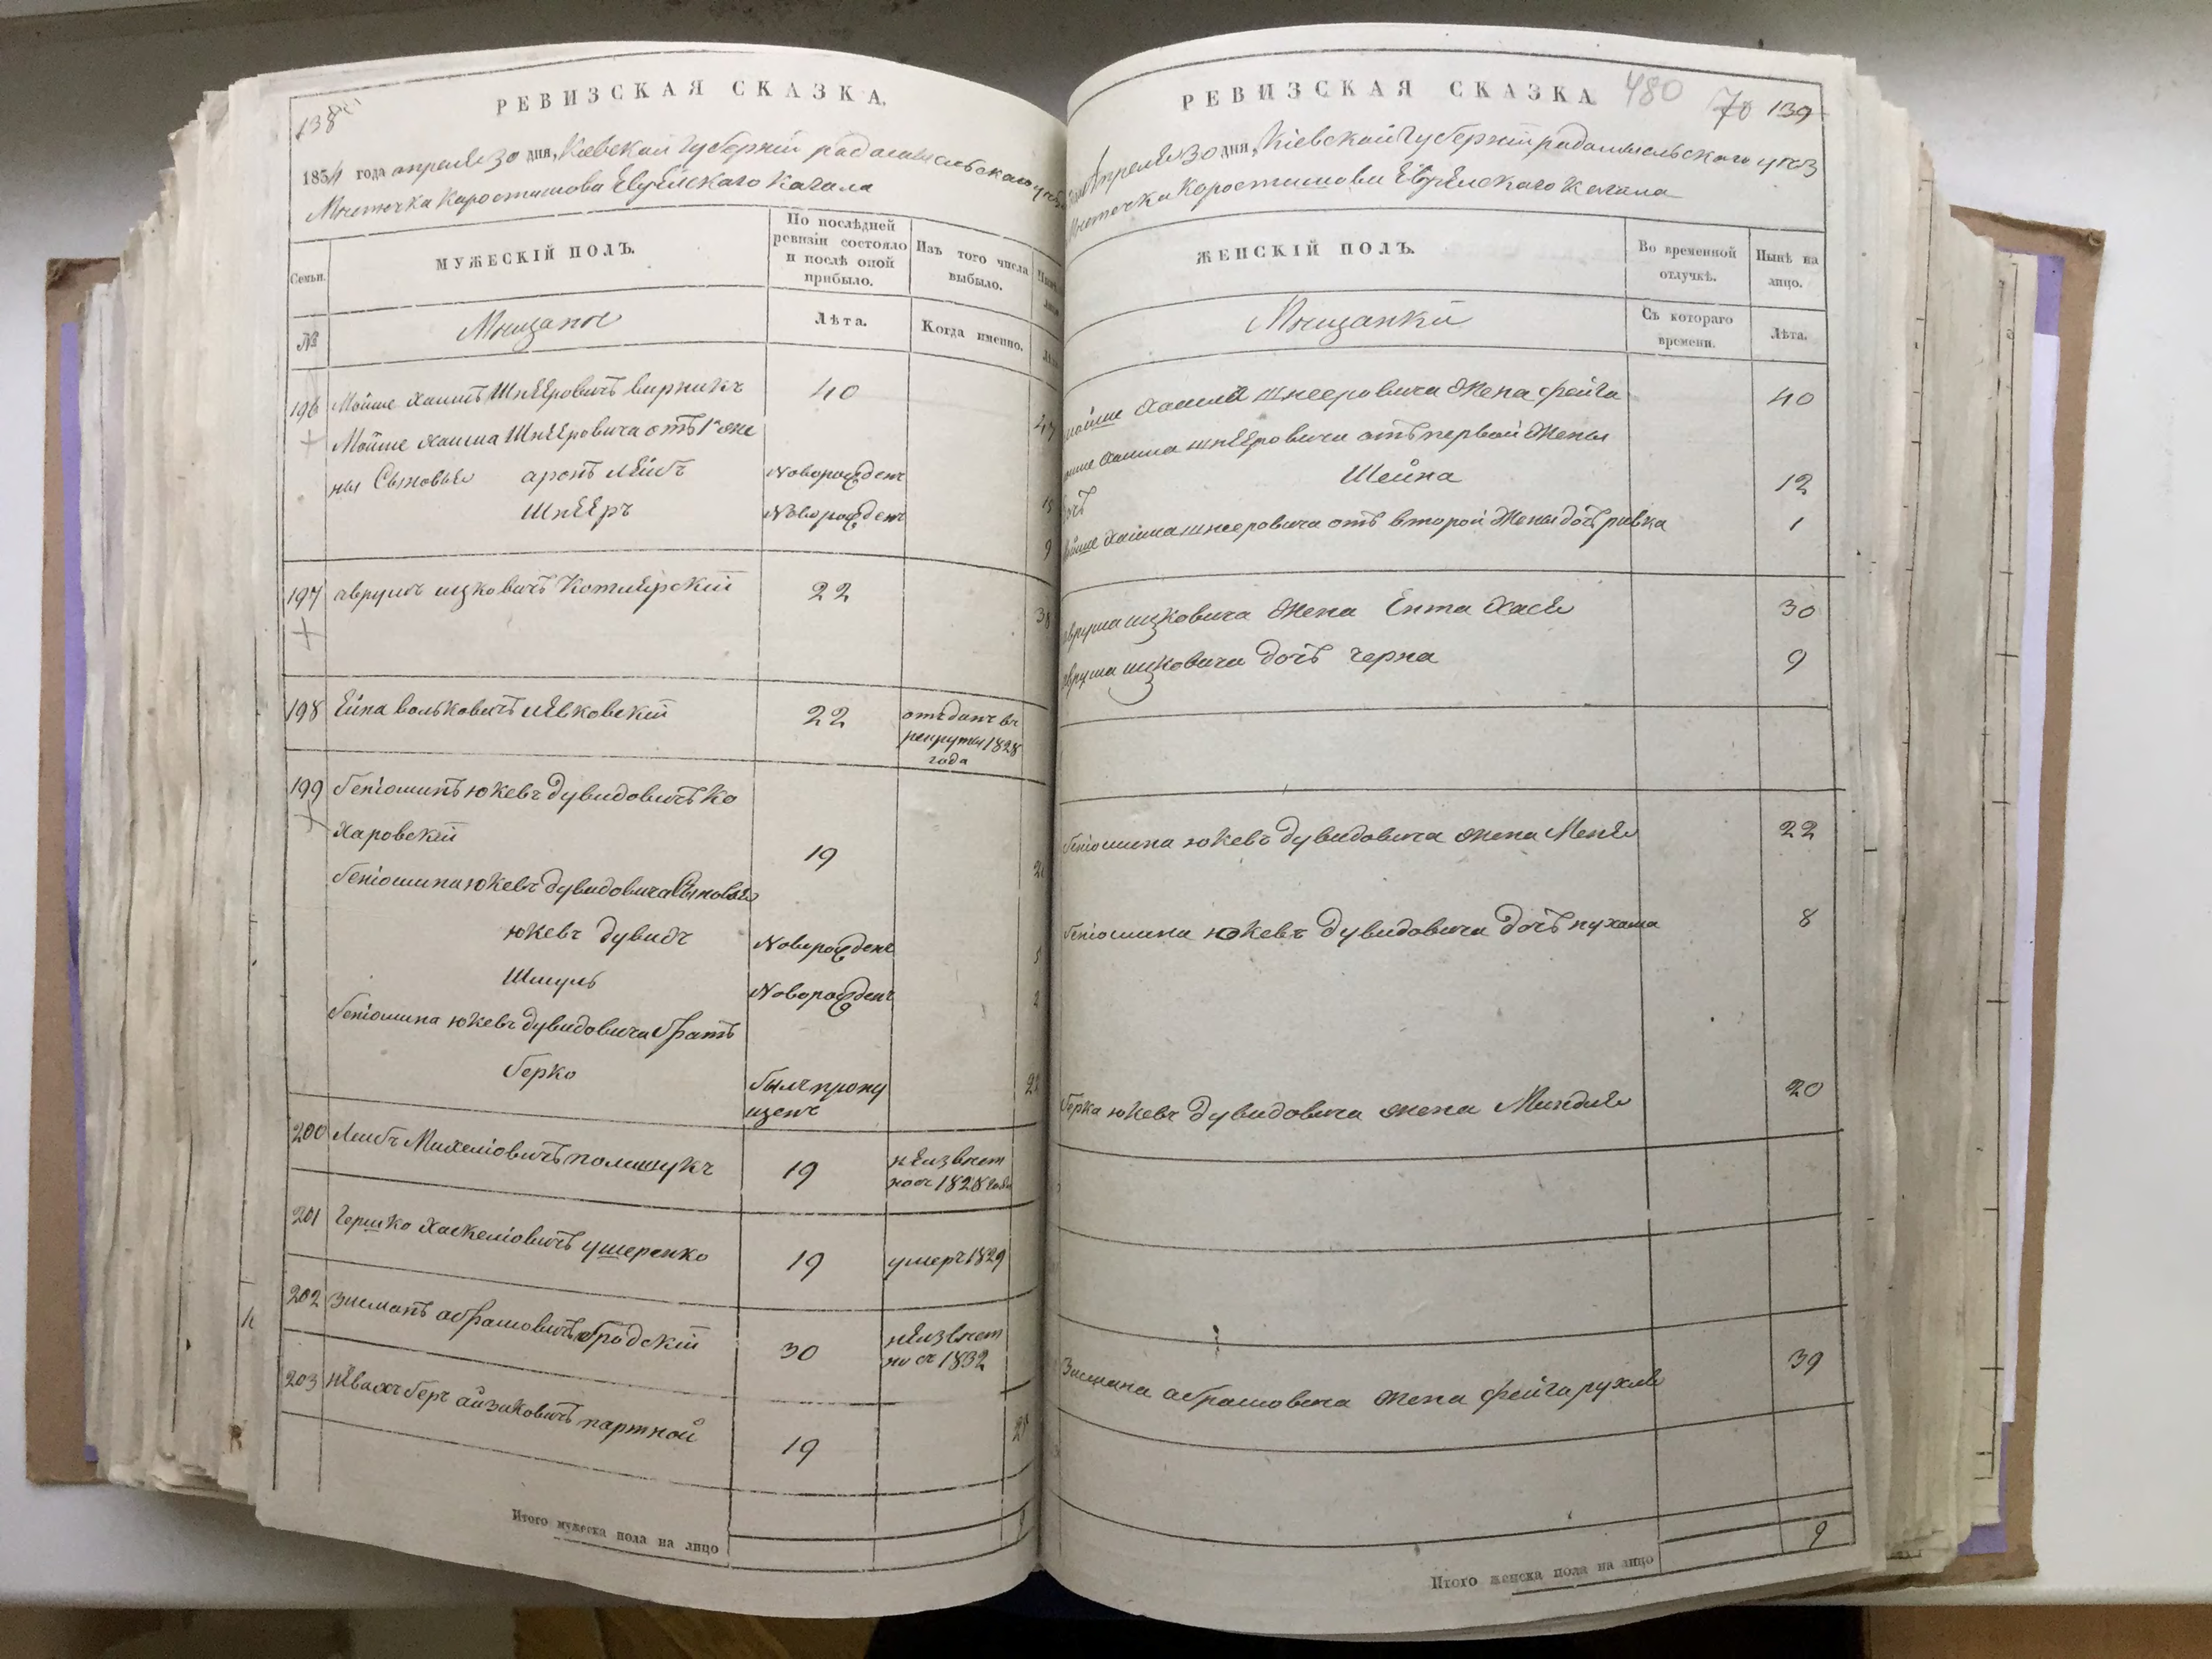 138
РЕВИЗСКАЯ СКАЗКА.
1834 года апреля 30 дня, Киевской Губернии радомысльского
Местечка Коростишова Еврейского Кагала
Семьи.
МУЖЕСКІЙ ПОЛЪ.
По послѣдней ревизіи состояло и послѣ оной прибыло.
Изъ того числа выбыло.
№
Мещане
Лѣта.
Когда именно.
196 Мойше Хаимъ Шнееровичъ вирникъ 40
Мойше Хаима Шнееровича отъ 1й же
ны Сыновья аронъ лейбъ Новорожденъ 15
Шнееръ Новорожденъ 9
197 аврумъ ицковичъ Котлерскій 22
198 Ейна вольковичъ 22 отъданъ въ
рекруты 1828
года
199 беніоминъ юкевъ дувидовичъ ко
харовскій 19
беніомина юкевъ дувидовича Сыновья
юкевъ дувидъ Новорожденъ 5
Шмуль Новорожденъ 2
беніомина юкевъ дувидовича братъ
берко былъ пропу
щенъ
200 Лейбъ Михеліовичъ полищукъ 19 неизвест
но съ 1828 года
201 Гершко Хаскеліовичъ ушеренко 19 умеръ 1829
202 Зисманъ абрамовичъ бродскій 30 неизвест
но съ 1832
203 беръ айзиковичъ партной 19
Итого мужеска пола на лицо
РЕВИЗСКАЯ СКАЗКА
480
70 139
Апреля 30 дня, Кіевской Губерніи радомысльского уез
Местечка Коростишова Еврейского Кагала
ЖЕНСКІЙ ПОЛЪ.
Во временной отлучкѣ.
Нынѣ на лицо.
Мещанки
Съ котораго времени.
Лѣта.
мойше Хаима шнееровича Жена фейга 40
Хаима шнееровича отъ первой Жены
Шейна 12
Хаима шнееровича отъ второй Жены дочъ ривка 1
аврума ицковича Жена Ента Хася 30
аврума ицковича дочъ черна 9
беніомина юкевъ дувидовича жена Меня 22
беніомина юкевъ дувидовича дочъ нухама 8
берка юкевъ дувидовича жена Миндля 20
Зисмана абрамовича жена фейга рухля 39
Итого женска пола на лицо 9